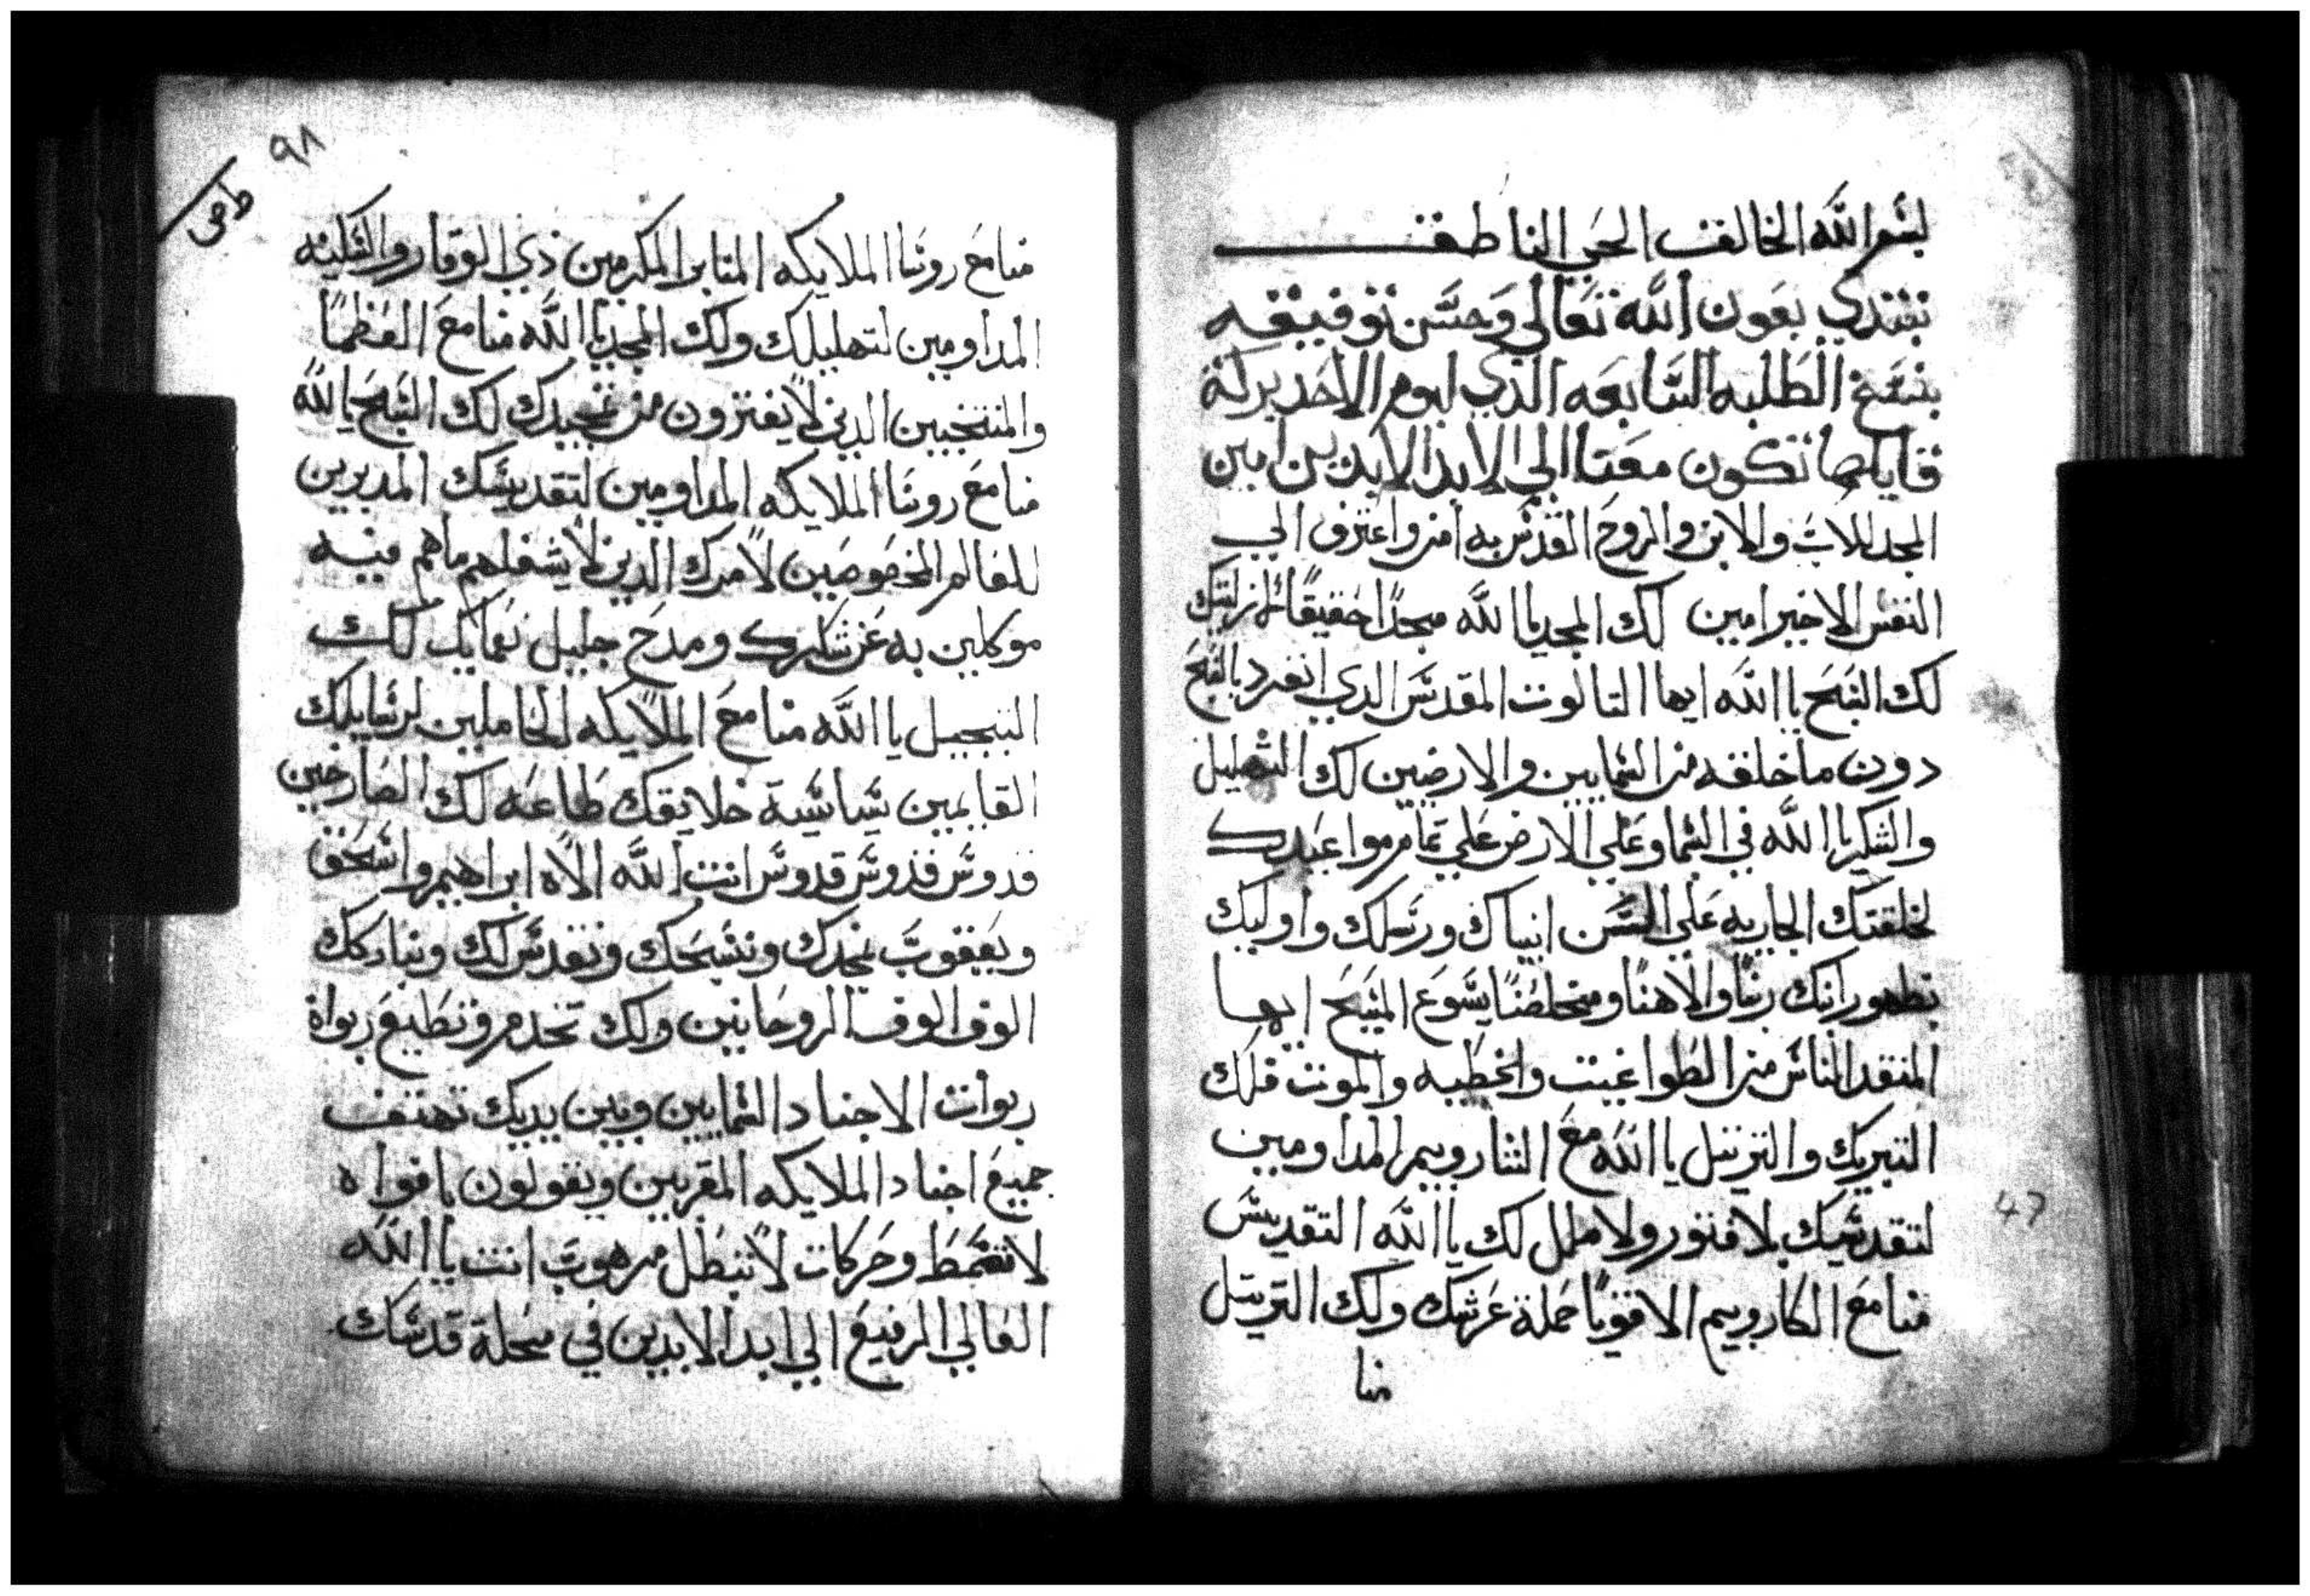 بسم الله الخالق الحي الناطق
نبتدي بعون الله تعالي وحسن توفيقه
بنسخ الطلبه السابعه الذي ليوم الاحد بركة
قايلها تكون معنا الي الابد الابدين امين
المجد للاب والابن والروح القدس به امن واعترف الي
النفس الاخير امين لك المجد ياالله مجدا حقيقا
لك السبح ياالله ايها التالوت المقدس الدي انفرد بالسبح
دون ما خلقه من السمايين والارضيين لك التهليل
والشكر ياالله في السما وعلي الارض علي تمام مواعيدك
لخلقتك الجاريه علي السن انبياك ورسلك واوليك
بظهور ابنك ربنا والاهنا ومخلصنا يسوع المسيح ايها
المنقد الناس من الطواغيت والخطيه والموت فلك
التبريك والترتيل ياالله مع السارويم المداومين
لتقديسك بلا فتور ولا ملل لك ياالله التقديس
منا مع الكارويم الاقويا حملة عرشك ولك الترتيل
منا
47
٩٨
منا مع روسا الملايكه المنابر المكرمين ذي الوقار والسكينه
المداومين لتهليلك ولك المجد ياالله منا مع العظما
والمنتخبين الدين لا يفترون من تمجيدك لك السبح ياالله
منا مع روسا الملايكه المداومين لتقديسك المدبرين
للعالم المخصوصين لامرك الدين لا يشغلهم ما هم فيه
موكلين به عن شكرك ومدح جليل نعمايك لك
التبجيل ياالله منا مع الملايكه الحاملين لرسايلك
القايمين بسياسة خلايقك طاعه لك الصارخين
قدوس قدوس قدوس انت الله الاه ابراهيم واسحق
ويعقوب نمجدك ونسبحك ونقدس لك ونباركك
الوف الوف الروحانين ولك تخدم وتطيع ربواة
ربوات الاجناد السمايين وبين يديك تهتف
جميع اجناد الملايكه المقربين ويقولون بافواه
لا تصمط وحركات لا تبطل مرهوب انت ياالله
العالي الرفيع الي ابد الابدين في محلة قدسك